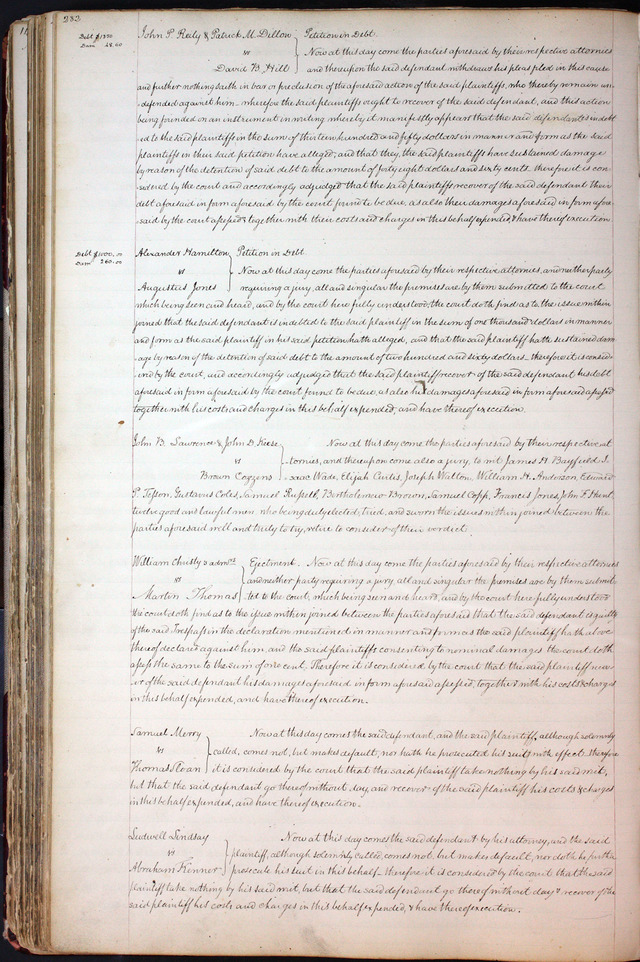 232
Debt $1350
Dam 48.60
John P. Reily & Patrick M. Dillon } Petition in Debt.
vs } Now at this day come the parties aforesaid by their respective attornies
David B. Hill } and thereupon the said defendant withdraws his pleas filed in this cause
and further nothing saith in bar or preclusion of the aforesaid action of the said plaintiffs, who thereby remain un
defended against him. wherefore the said plaintiffs ought to recover of the said defendant, and this action
being founded on an instrument in writing whereby it manifestly appears that the said defendant is indebt
ed to the said plaintiffs in the sum of thirteen hundred and fifty dollars in manner and form as the said
plaintiffs in their said petition have alleged; and that they, the said plaintiffs have sustained damage
by reason of the detention of said debt to the amount of forty eight dollars and sixty cents. therefore it is con
sidered by the court and accordingly adjudged that the said plaintiffs recover of the said defendant their
debt aforesaid in form aforesaid by the court found to be due, as also their damages aforesaid in form afore
said by the court assessed together with their costs and charges in this behalf expended, & have thereof execution.
Debt $1000.00
Dam 260.00
Alexander Hamilton } Petition in Debt
vs } Now at this day come the parties aforesaid by their respective attornies, and neither party
Augustus Jones } requiring a jury, all and singular the premises are by them submitted to the court
which being seen and heard, and by the court here fully understood, the court doth find as to the issue within
joined that the said defendant is indebted to the said plaintiff in the sum of one thousand dollars in manner
and form as the said plaintiff in his said petition hath alleged, and that the said plaintiff hath sustained dam
age by reason of the detention of said debt to the amount of two hundred and sixty dollars. therefore it is consid
ered by the court, and accordingly adjudged that the said plaintiff recover of the said defendant his debt
aforesaid in form aforesaid by the court found to be due, as also his damages aforesaid in form aforesaid assessed
together with his costs and charges in this behalf expended, and have thereof execution.
John B. Lawrence & John D. Keese } Now at this day come the parties aforesaid by their respective at
vs } tornies, and thereupon come also a jury, to wit James H. Bayfield, I
Brown Cozzens } saac Wade, Elijah Curtis, Joseph Walton, William H. Anderson, Edward
P. Tesson, Gustavus Coles, Samuel Russell, Bartholemew Brown, Samuel Copp, Francis Jones, John F. Hunt,
twelve good and lawful men, who being duly elected, tried, and sworn the issues within joined between the
parties aforesaid well and truly to try, retire to consider of their verdict.
William Christy's adm'rs } Ejectment. Now at this day come the parties aforesaid by their respective attornies
vs } and neither party requiring a jury, all and singular the premises are by them submit
Martin Thomas } ted to the court, which being seen and heard, and by the court here fully understood
the court doth find as to the issue within joined between the parties aforesaid that the said defendant is guilty
of the said Trespass in the declaration mentioned in manner and form as the said plaintiff hath above
thereof declared against him, and the said plaintiffs consenting to nominal damages the court doth
assess the same to the sum of one cent. Therefore it is considered by the court that the said plaintiff recov
er of the said defendant his damages aforesaid in form aforesaid assessed, together with his costs & charges
in this behalf expended, and have thereof execution.
Samuel Merry } Now at this day comes the said defendant, and the said plaintiff, although solemnly
vs } called, comes not, but makes default, nor hath he prosecuted his suit with effect. therefore
Thomas Sloan } it is considered by the court that the said plaintiff take nothing by his said writ,
but that the said defendant go thereof without day, and recover of the said plaintiff his costs & charges
in this behalf expended, and have thereof execution.
Ludwell Lindsay } Now at this day comes the said defendant by his attorney, and the said
vs } plaintiff, although solemnly called, comes not, but makes default, nor doth he further
Abraham Kenner } prosecute his suit in this behalf. therefore it is considered by the court that the said
plaintiff take nothing by his said writ, but that the said defendant go thereof without day & recover of the
said plaintiff his costs and charges in this behalf expended, & have thereof execution.